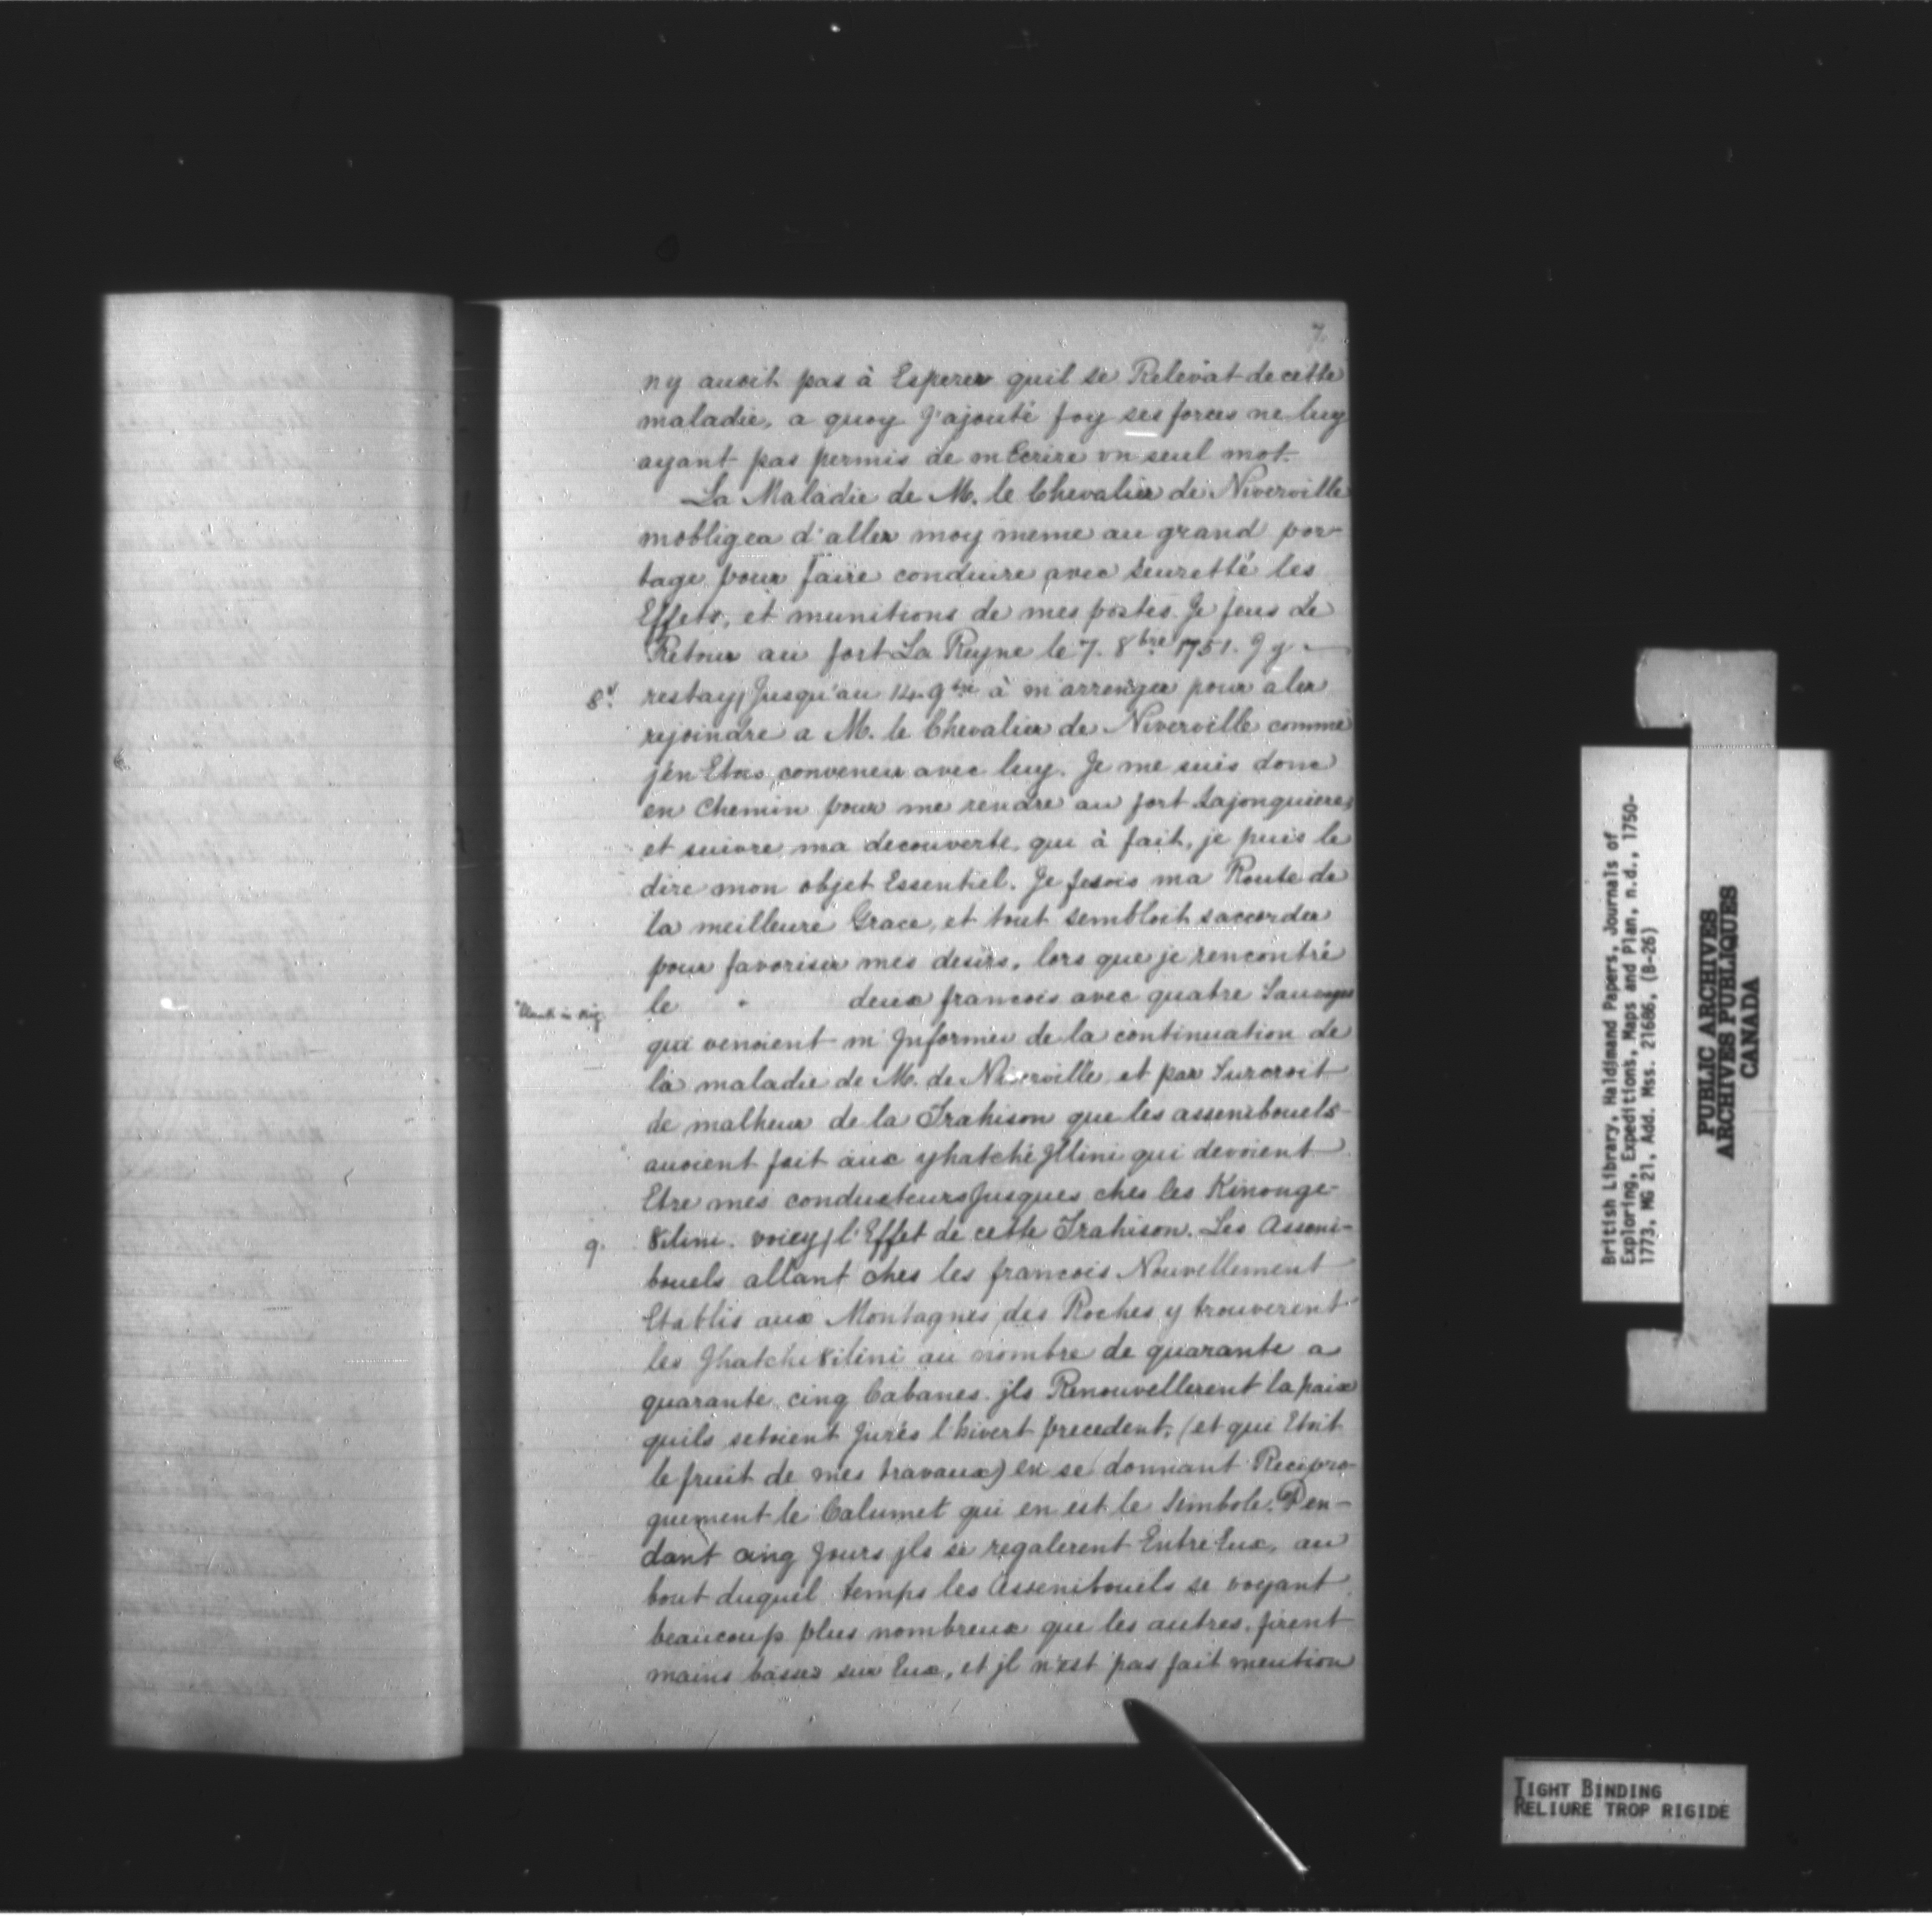 7.
ny avoit pas à Esperer quil se Relevat de cette
maladie, a quoy J'ajouté foy ses forces ne luy
ayant pas permis de m Ecrire un seul mot.
La Maladie de M. le Chevalier de Niverville
mobligea d'aller moy meme au grand por-
tage pour faire conduire avec seuretté les
Effets, et munitions de mes postes. Je feus de
Retour au fort La Reyne le 7. 8bre 1751. J y
8v restay/Jusqu'au 14. 9bre à m'arrenger pour aler
rejoindre a M. le Chevalier de Niverville comme
jén Etois conveneu avec luy. Je me suis donc
en Chemin pour me rendre au fort Lajonquiere,
et suivre ma decouverte qui à fait, je puis le
dire mon objet Essentiel. Je fesois ma Route de
la meilleure Grace, et tout sembloit saccorder
pour favoriser mes desirs, lors que je rencontré
*Blank in orig. le * deux francois avec quatre Sauvages
qui venoient m'Jnformer de la continuation de
la maladie de M. de Niverville et par Surcroit
de malheur de la Trahison que les assenibouels
avoient fait aux yhatché Jllini qui devoient
Etre mes conducteurs Jusques ches les Kinonge-
9. 8ilini. voicy/l'Effet de cette Trahison. Les Asseni-
bouels allant ches les francois Nouvellement
Etablis aux Montagnes des Roches y trouverent
les Jhatche8ilini au nombre de quarante a
quarante cinq Cabanes. jls Renouvellerent la paix
quils setoient Jurés l'hivert precedent, (et qui Etoit
le fruit de mes travaux) en se donnant Recipro-
quement le Calumet qui en est le Simbole. Pen-
dant cinq Jours jls se regalerent Entre Eux, au
bout duquel temps les Assenibouels se voyant
beaucoup plus nombreux que les autres, firent
mains basses sur Eux, et jl n'est pas fait mention
British Library, Haldimand Papers, Journals of
Exploring, Expeditions, Maps and Plan, n.d., 1750-
1773, MG 21, Add. Mss. 21686, (B-26)
PUBLIC ARCHIVES
ARCHIVES PUBLIQUES
CANADA
TIGHT BINDING
RELIURE TROP RIGIDE